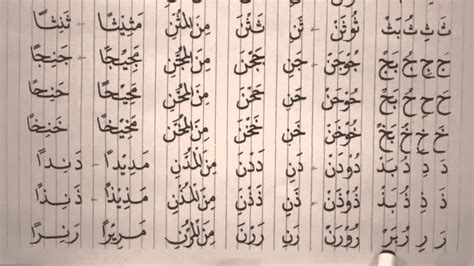 ثَ ثِ ثُ بَثْ ثُوْثَنَ - ثَنِ ثَثْنَ مِنَ المُثْنِ مَثِيْثًا - ثَنِثًا
جَ جِ جُ بَجْ جُوْجَنَ - جَنِ جَجْنَ مِنَ المُجْنِ مَجِيْجًا - جَنِجًا
حَ حِ حُ بَحْ حُوْحَنَ - حَنِ حَحْنَ مِنَ المُحْنِ مَحِيْحًا - حَنِحًا
خَ خِ خُ بَخْ خُوْخَنَ - خَنِ خَخْنَ مِنَ المُخْنِ مَخِيْخًا - خَنِخًا
دَ دِ دُ بَدْ دُوْدَنَ - دَنِ دَدْنَ مِنَ المُدْنِ مَدِيْدًا - دَنِدًا
ذَ ذِ ذُ بَذْ ذُوْذَنَ - ذَنِ ذَذْنَ مِنَ المُذْنِ مَذِيْذًا - ذَنِذًا
رَ رِ رُ بَرْ رُوْرَنَ - رَنِ رَرْنَ مِنَ المُرْنِ مَرِيْرًا - رَنِرًا